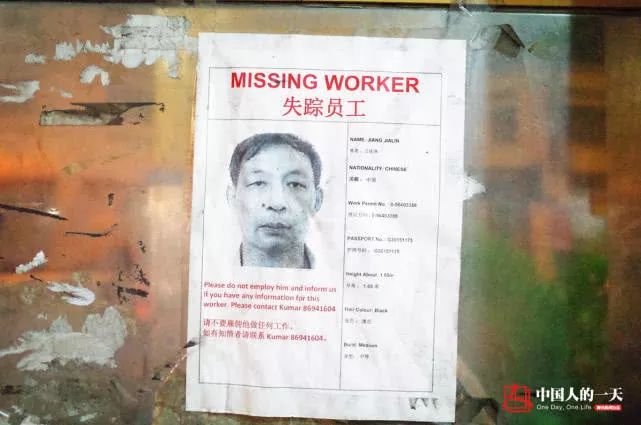 MISSING WORKER
失踪员工
NAME: JIANG JIALIN
NATIONALITY: CHINESE
国籍: 中国
Work Permit No.: 0-96403388
PASSPORT No.: G20151175
Height About: 1.65m
Hair Colour: Black
Build: Medium
Please do not employ him and inform us
if you have any information for this
worker. Please contact Kumar 86941604
请不要雇佣他做任何工作。
如有知情者请联系 Kumar 86941604。
中国人的一天
One Day, One Life